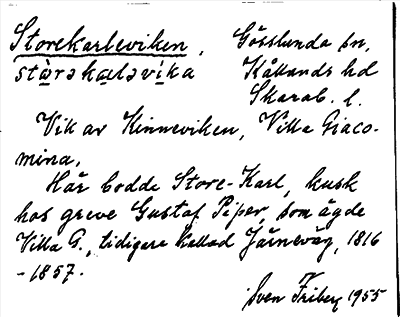 Storekarleviken, Gösslunda sn,
stɷ̀rəkaləvíka Kållands hd
Skarab. l.
Vik av Kinneviken, Villa Giaco-
mina.
Här bodde Store-Karl, kusk
hos greve Gustaf Piper, som ägde
Villa G., tidigare kallad Järneväg, 1816
-1857.
Sven Friberg 1955